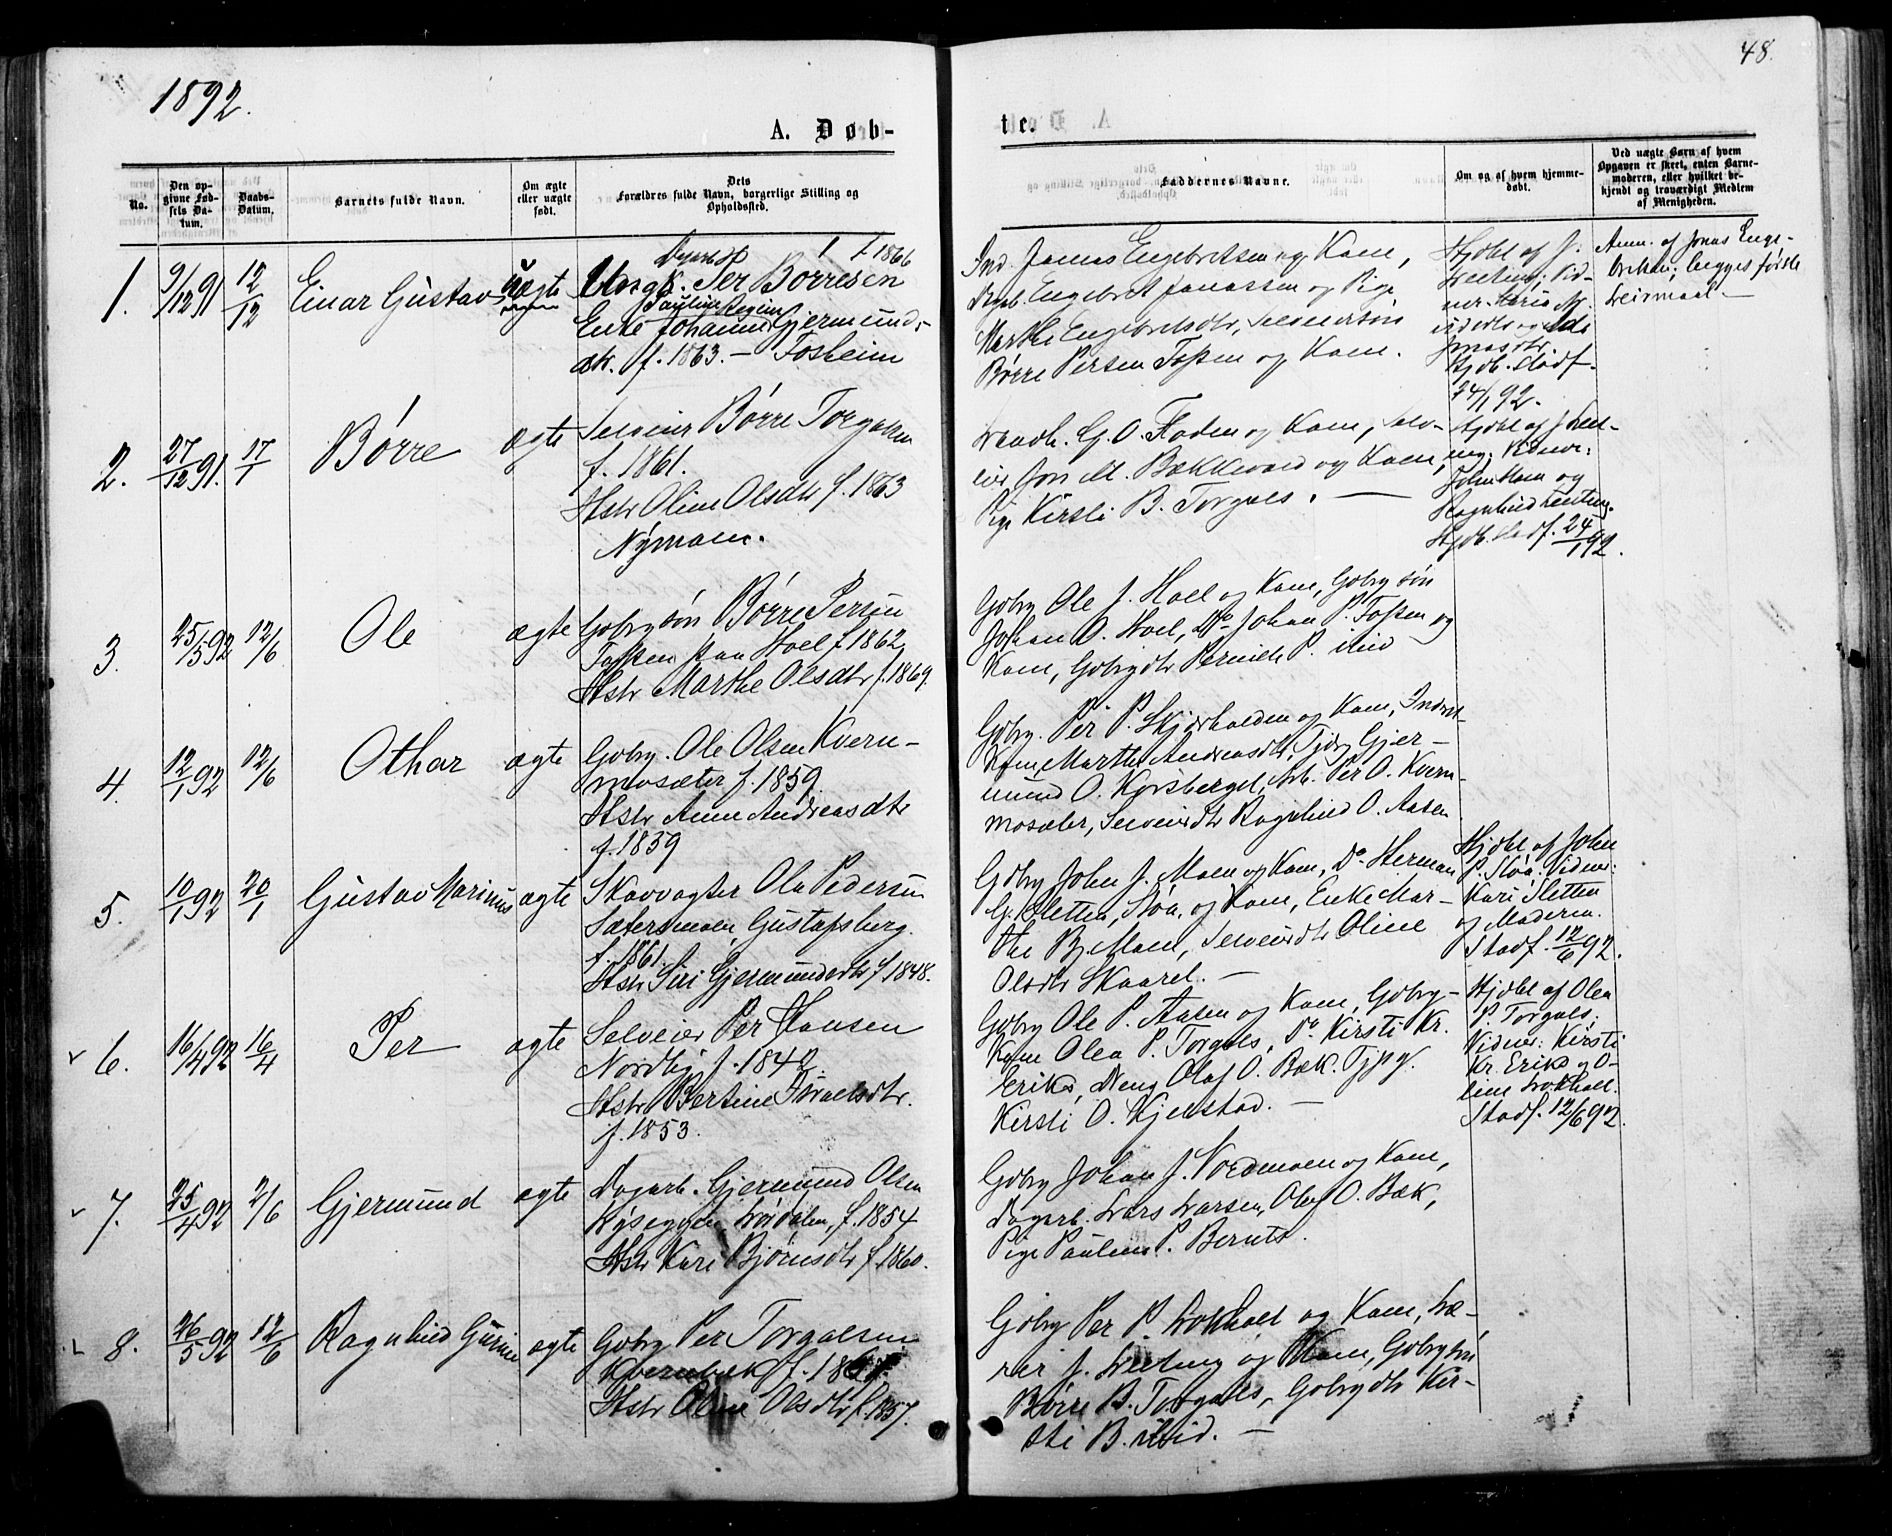 1892.
48.
A. Døb-
te.
No.
Den op-
givne Fød-
sels Da-
tum.
Daabs-
Datum.
Barnets fulde Navn.
Om ægte
eller uægte
født.
Dets
Forældres fulde Navn, borgerlige Stilling og
Opholdssted.
Faddernes Navne.
Om og af hvem hjemme-
døbt.
Ved uægte Børn af hvem
Opgaven er skeet, enten Barne-
moderen, eller hvilket be-
kjendt og troværdigt Medlem
af Menigheden.
1.
9/12 91
12/12
Einar Gustav
uægte
f. 1866
Ungk. Per Børresen
Pauline Regine
Enke Johanne Gjermunds-
dtr. f. 1863. - Fosheim
Ind. Jonas Engebretsen og Kone,
Engebret Jonassen og Pige
Marthe Engebretsdtr, Selveiersøn
Børre Persen Fossen og Kone.
Hjdbt af J.
Stadf.
24/1 92.
Anm. af Jonas Enge-
bretsen; begges første
Leirmaal.
2.
27/12 91.
17/1
Børre
ægte
Selveier Børre Torgalsen
f. 1861.
Hstr Oline Olsdtr f. 1863
Nymoen.
Landh. G. O. Floden og Kone, Selv-
eier Jon M. Bækkevold og Kone,
Pige Kirsti B. Torgals.
Hjdbt af J. Leet-
ing; Vidner:
John Moen og
Ragnhild Leeting.
Hjdb. Stadf. 24/1 92.
3.
25/5 92
12/6
Ole
ægte
Gbrgsøn Børre Persen
Fossen paa Hoel f. 1862
Hstr Marthe Olsdtr f. 1869.
Gbrg Ole J. Hoel og Kone, Gbrgsøn
Johan O. Hoel, Do Johan P. Fossen og
Kone, Gbrgdtr Pernille P. ibid
4.
12/1 92
12/6
Othar
ægte
Gbrg. Ole Olsen Kvern-
mosæter f. 1859.
Hstr Anne Andreasdtr
f. 1859
Gbrg. Per P. Skjærholden og Kone, Indrst-
Kone Marthe Andreasdtr, Tjpg Gjer-
mund O. Korsberget, Arb. Per O. Kvern-
mosæter, Selveierdtr Ragnhild O. Aasen
5.
10/1 92
20/1
Gustav Marinus
ægte
Skovvogter Ole Pedersen
Sætersmoen, Gustafsberg.
f. 1861.
Hstr Siri Gjermundsdtr f. 1848.
Gbrg John J. Moen og Kone, Do Herman
G. Sletten, Stöa, og Kone, Enke Mar-
the B. Moen, Selveierdtr Oline
Olsdtr Skaaret.
Hjdbt af John
P. Stöa. Vidner:
Kari Sletten
og Moderen.
Stadf. 12/6 92.
6.
16/4 92
16/4
Per
ægte
Selveier Per Hansen
Nordli f. 1840.
Hstr Bertine Israelsdtr.
f. 1853.
Gbrg Ole P. Aasen og Kone, Gbrg-
Kone Olea P. Torgals, Do Kirsti Kr.
Eriks, Ung. Olaf O. Bæk. Tjpg.
Kirsti O. Kjelstad.
Hjdbt af Olea
P. Torgals.
Vidner: Kirsti
Kr. Eriks og O-
line Lokholt.
Stadf. 12/6 92.
7.
25/4 92
2/6
Gjermund
ægte
Dagarb. Gjermund Olsen
Lördalen, f. 1854
Hstr Kari Bjørnsdtr f. 1860.
Gbrg Johan J. Nordmoen og Kone,
Dagarb. Lars Larsen, Olaf O. Bæk,
Pige Pauline P. Bernts.
8.
26/5 92
12/6
Ragnhild Gurine
ægte
Gbrg Per Torgalsen
Kvernbæk f.
Hstr Oline Olsdtr f. 1857.
Gbrg Per P. Lokholt og Kone, Læ-
rer J. Leeting og Kone, Gbrgsøn
Børre B. Torgals, Gbrgdtr Kir-
sti B. ibid.